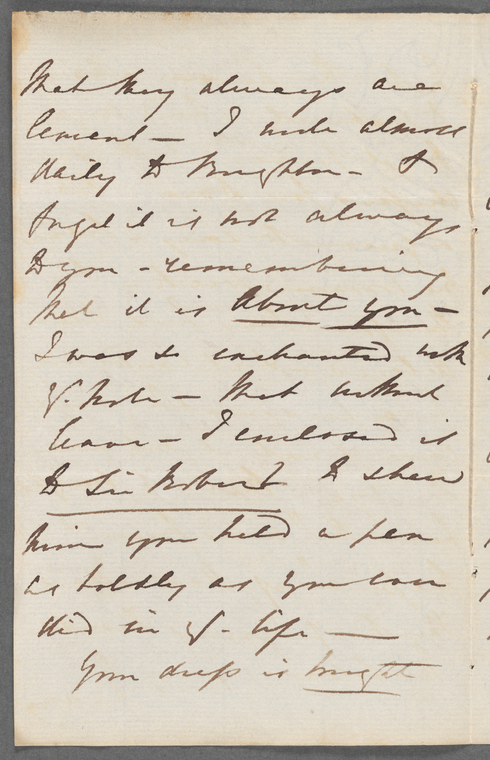 that they always are
lenient — I write almost
daily to Brighton — I
forget it is not always
to you — remembering
that it is about you —
I was so enchanted with
yr. note — that without
leave — I enclosed it
to Sir Robert to shew
him you held a pen
as boldly as you ever
did in yr. life —
Your dress is bought